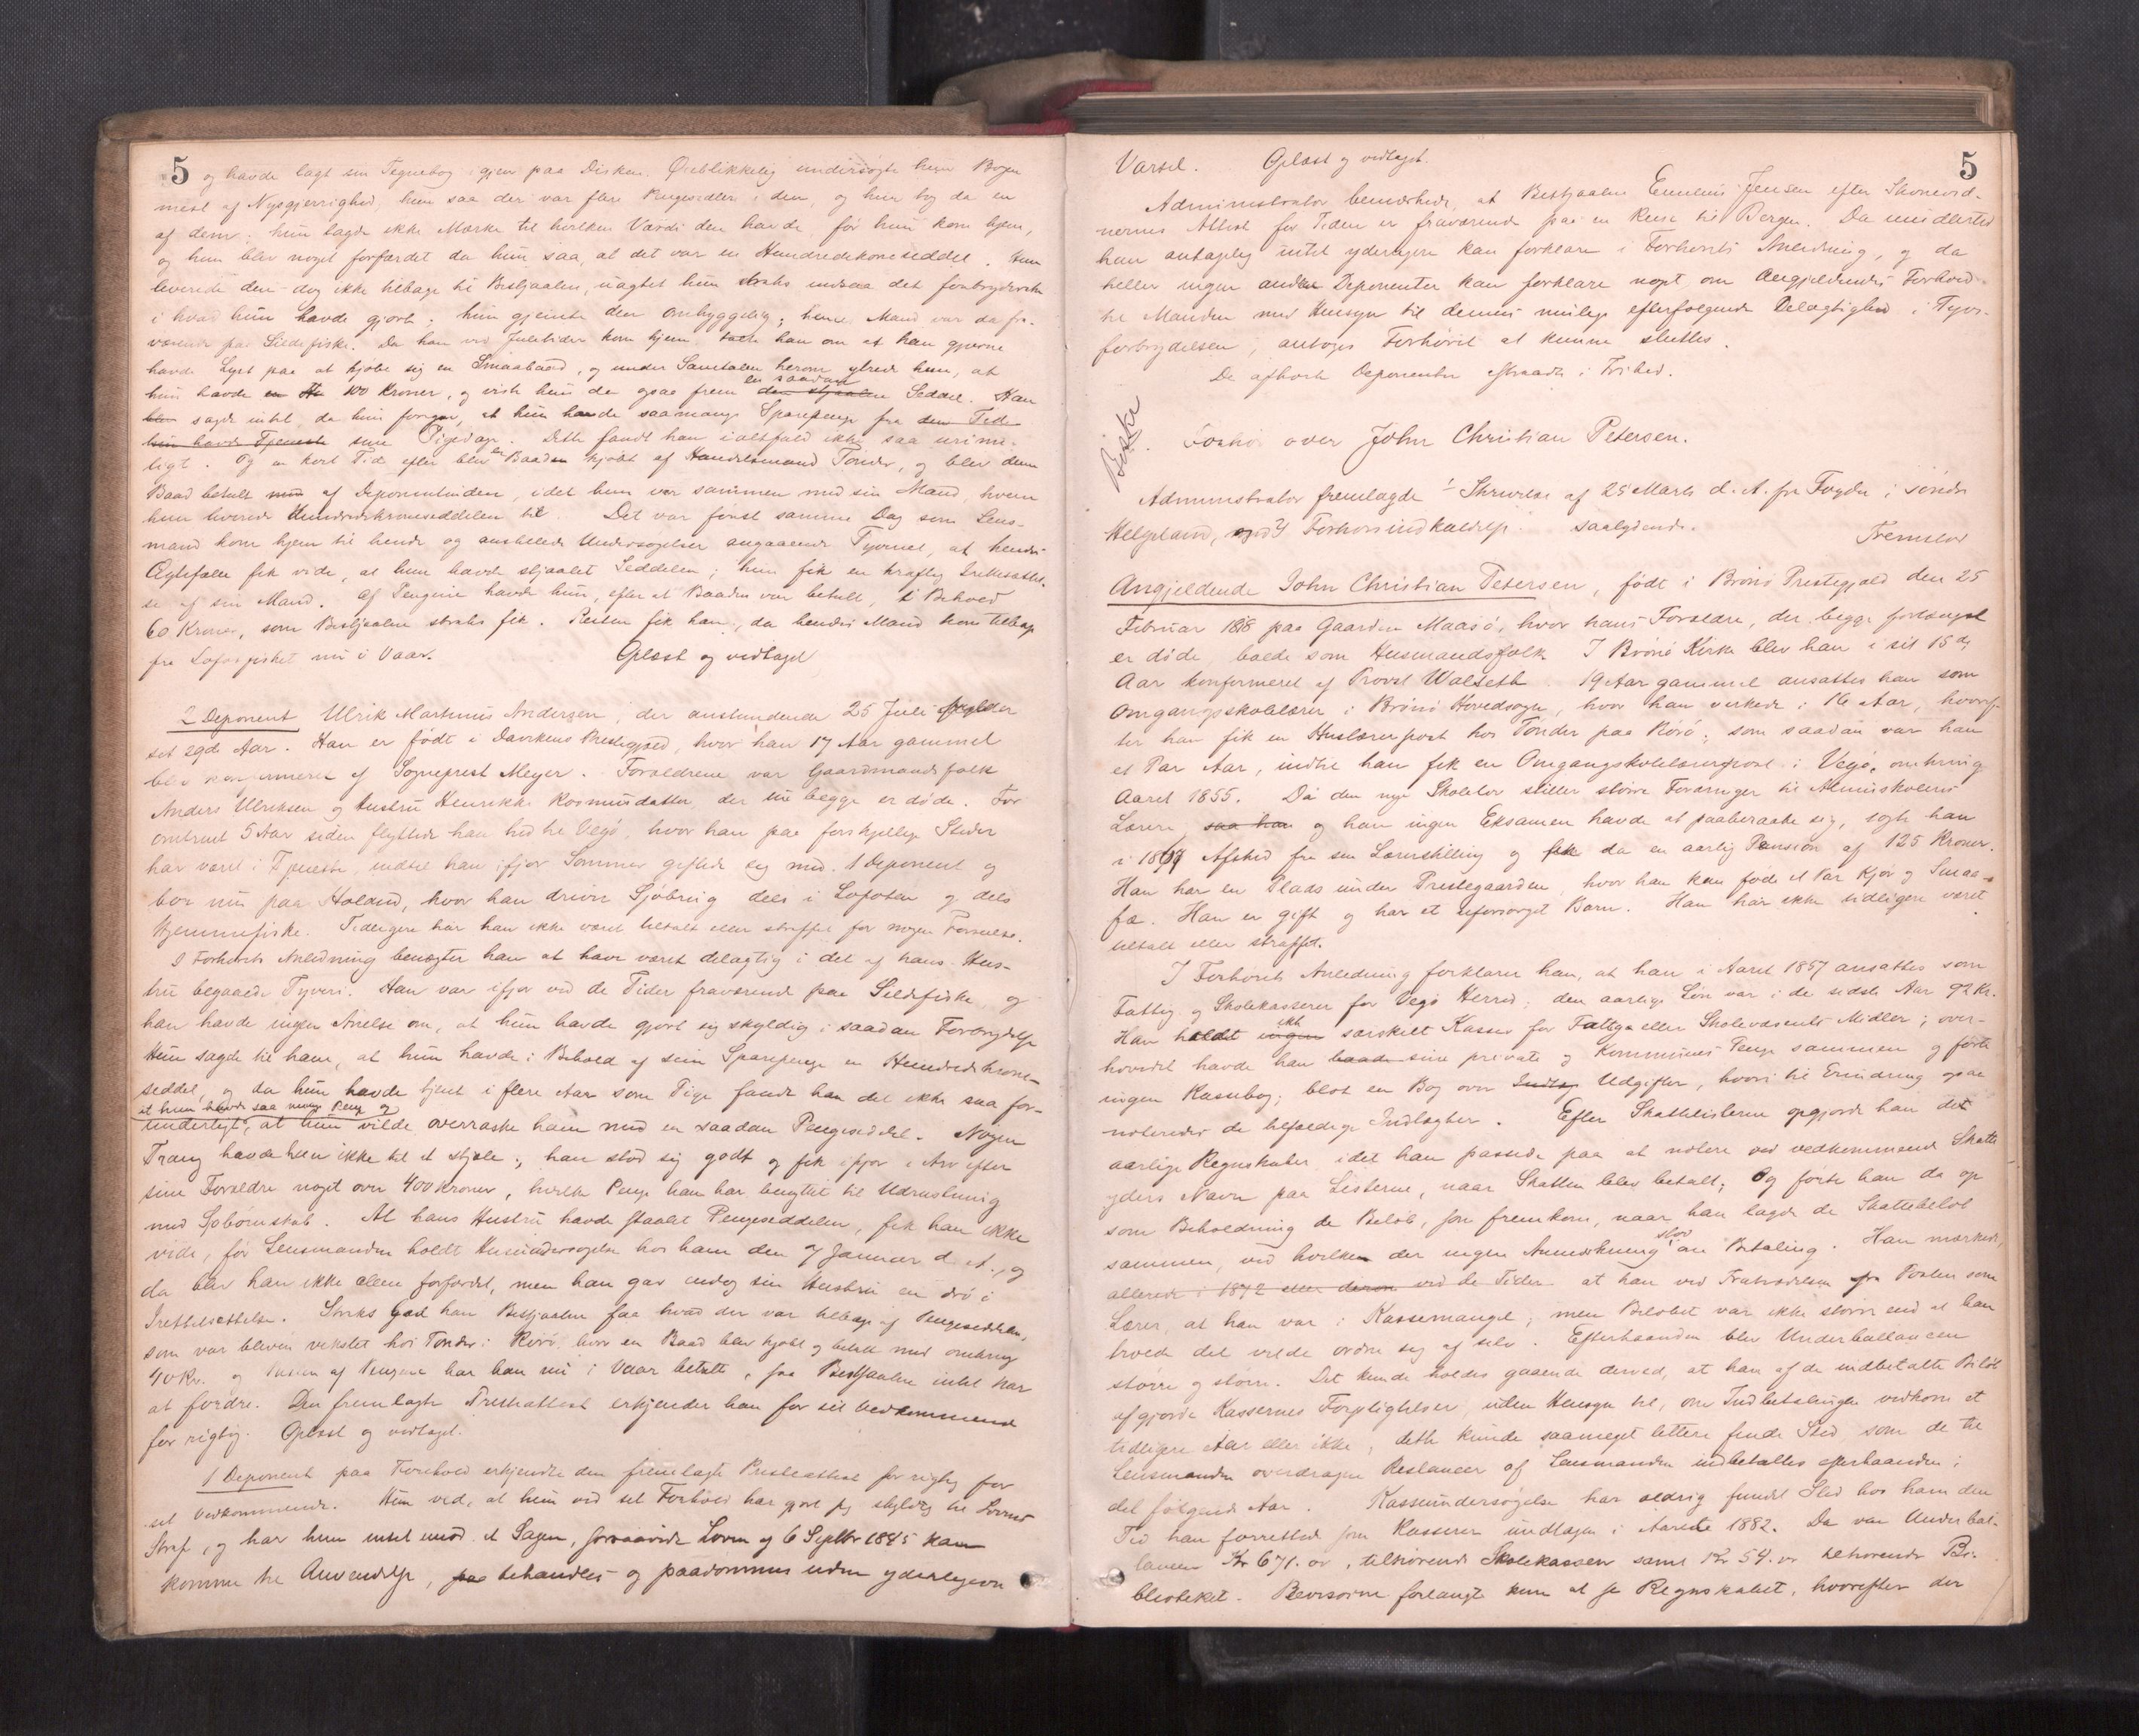 5 og havde lagt sin Tegnebog igjen paa Disken. Øieblikkelig undersøgte hun Bogen
mest af Nysgjerrighed, hun saa der var flere Pengesedler i den, og hun tog da en
af dem; hun lagde ikke Mærke til hvilken Værdi den havde, før hun kom hjem,
og hun blev noget forfærdet da hun saa, at det var en Hundredekroneseddel. Hun
leverede den dog ikke tilbage til Bestjaalne, uagtet hun straks indsaa det forbryderske
i hvad hun havde gjort; hun gjemte den omhyggelig; hendes Mand var da fra-
værende paa Sildefiske. Da han ved Juletider kom hjem, talte han om at han gjerne
havde Lyst paa at kjøbe sig en Smaabaad, og under Samtalen herom ytrede hun, at
hun havde en 100 Kroner, og viste hun da ogsaa frem den stjaalne en saadan Seddel. Han
sagde intet, da hun foregav, at hun havde saamange Sparepenge fra den Tid
hun havde Tjeneste sine Pigedage. Dette fandt han ialtfald ikke saa urime-
ligt. Og en kort Tid efter blev en Baad kjøbt af Handelsmand Tonder, og blev denne
Baad betalt af Deponentinden, idet hun var sammen med sin Mand, hvem
hun leverede Hundredekroneseddelen til. Det var først samme Dag som Lens-
mand kom hjem til hende og anstillede Undersøgelser angaaende Tyveriet, at hendes
Ægtefælle fik vide, at hun havde stjaalet Seddelen; hun fik en kraftig Irettesættel-
se af sin Mand. Af Pengene havde hun, efter at Baaden var betalt, i Behold
60 Kroner, som Bestjaalne straks fik. Resten fik han, da hendes Mand kom tilbage
fra Lofotfisket nu i Vaar. Oplæst og vedtaget
2 Deponent Ulrik Martinus Andersen, der anstundende 25 Juli fylder
sit 29de Aar. Han er født i Davikens Prestegjæld, hvor han 17 Aar gammel
blev konfirmeret af Sogneprest Meyer. Forældrene var Gaardmandsfolk
Anders Ulriksen og Hustru Henrikke Rasmusdatter, der nu begge er døde. For
omtrent 5 Aar siden flyttede han hid til Vegø, hvor han paa forskjellige Steder
har været i Tjeneste, indtil han ifjor Sommer giftede sig med 1 Deponent og
bor nu paa Holand, hvor han driver Sjøbrug dels i Lofoten og dels
Hjemmefiske. Tidligere har han ikke været tiltalt eller straffet for nogen Forseelse.
I Forhørets Anledning benægter han at have været delagtig i det af hans Hus-
tru begaaede Tyveri. Han var ifjor ved de Tider fraværende paa Sildefiske, og
han havde ingen Anelse om, at hun havde gjort sig skyldig i saadan Forbrydelse
Hun sagde til ham, at hun havde i Behold af sine Sparepenge en Hundredekrone-
seddel, og da hun havde tjent i flere Aar som Pige fandt han det ikke saa for-
at hun havde saa mange Penge og
underligt, at hun vilde overraske ham med en saadan Pengeseddel. Nogen
Trang havde hun ikke til at stjæle; han stod sig godt og fik ifjor i Arv efter
sine Forældre noget over 400 Kroner, hvilke Penge han har benyttet til Udrustning
med Sjøbrugsskab. At hans Hustru havde stjaalet Pengeseddelen, fik han ikke
vide, før Lensmanden holdt Husundersøgelse hos ham den 7 Januar d. A., og
da blev han ikke alene forfærdet, men han gav endog sin Hustru en drøi
Irettesættelse. Straks gav han Bestjaalne faa hvad der var tilbage af Pengeseddelen,
som var bleven vekslet hos Tonder i Rørø, hvor en Baad blev kjøbt og betalt med omkring
40 Kr. og Resten af Pengene har han nu i Vaar betalt, saa Bestjaalne intet har
at fordre. Den fremlagte Presteattest erkjender han for sit Vedkommende
for rigtig. Oplæst og vedtaget.
1 Deponent paa Forehold erkjendte den fremlagte Presteattest for rigtig for
sit Vedkommende. Hun ved, at hun ved sit Forhold har gjort sig skyldig til Lovens
Straf, og har hun intet imod at Sagen, forsaavidt Loven af 6 Septbr 1845 kan
komme til Anvendelse, behandles og paadømmes uden yderligere
Varsel. Oplæst og vedtaget. 5
Administrator bemærkede, at Bestjaalne Emelius Jensen efter Stevnevid-
nernes Attest for Tiden er fraværende paa en Reise til Bergen. Da imidlertid
han antagelig intet yderligere kan forklare i Forhørets Anledning, og da
heller ingen andre Deponenter kan forklare noget om Angjældendes Forhold
til Manden med Hensyn til dennes mulige efterfølgende Delagtighed i Tyvs-
forbrydelsen, antoges Forhøret at kunne sluttes.
De afhørte Deponenter afstraadte i Frihed.
Forhør over John Christian Petersen.
Administrator fremlagde 1 Skrivelse af 25 Marts d. A. fra Fogden i søndre
Helgeland, med Forhørsindkaldelse. saalydende.
Fremstod
Angjeldende John Christian Petersen, født i Brønø Prestegjæld den 25
Februar 1818 paa Gaarden Maasø, hvor hans Forældre, der begge forlængst
er døde, boede som Husmandsfolk. I Brønø Kirke blev han i sit 15de
Aar konfirmeret af Provst Walseth. 19 Aar gammel ansattes han som
Omgangsskolelærer i Brønø Hovedsogn, hvor han virkede i 16 Aar, hvoref-
ter han fik en Huslærerpost hos Tonder paa Rørø; som saadan var han
et Par Aar, indtil han fik en Omgangsskolelærerpost i Vegø, omkring
Aaret 1855. Da den nye Skolelov stiller større Fordringer til Almueskolens
Lærere, saa han og han ingen Eksamen havde at paaberaabe sig, søgte han
i 18 Afsked fra sin Lærerstilling og fik da en aarlig Pension af 125 Kroner.
Han har en Plads under Prestegaarden, hvor han kan føde et Par Kjør og Smaa-
fæ. Han er gift og har et uforsørget Barn. Han har ikke tidligere været
tiltalt eller straffet.
I Forhørets Anledning forklarer han, at han i Aaret 1857 ansattes som
Fattig og Skolekasserer for Vegø Herred; den aarlige Løn var i de sidste Aar 92 Kr.
Han holdt ingen ikke særskilt Kasser for Fattige eller Skolevæsenets Midler; over-
hovedet havde han baade sine private og Kommunens Penge sammen og førte
ingen Kassebog; blot en Bog over Indtæg Udgifter, hvori til Erindring ogsaa
noteredes de tilfældige Indtægter. Efter Skattelisterne opgjorde han det
aarlige Regnskaber, idet han passede paa at notere ved vedkommende Skatte
yders Navn paa Listerne, naar Skatten blev betalt; Og førte han da op
som Beholdning de Beløb, som fremkom, naar han lagde de Skattebeløb
sammen, ved hvilken der ingen Anmerkning stod om Betaling. Han mærkede,
allerede i 1872 eller deron ved de Tider at han ved Fratrædelsen fra Posten som
Lærer, at han var i Kassemangel; men Beløbet var ikke større end at han
troede det vilde ordne sig af selv. Efterhaanden blev Underballancen
større og større. Det kunde holdes gaaende derved, at han af de indbetalte Beløb
afgjorde Kassernes Forpligtelser, uden Hensyn til, om Indbetalingen vedkom et
tidligere Aar eller ikke, dette kunde saameget lettere finde Sted, som de til
Lensmanden overdragne Restancer af Lensmanden indbetaltes efterhaanden i
det følgende Aar. Kasseundersøgelse har aldrig fundet Sted hos ham den
Tid han forrettede som Kasserer undtagen i Aarene 1882. Da var Underbal-
lancen Kr 671. ør, tilhørende Skolekassen samt Kr 54. ør tilhørende Bi-
blioteket. Revisorerne forlangte kun at se Regnskabet, hvorefter der